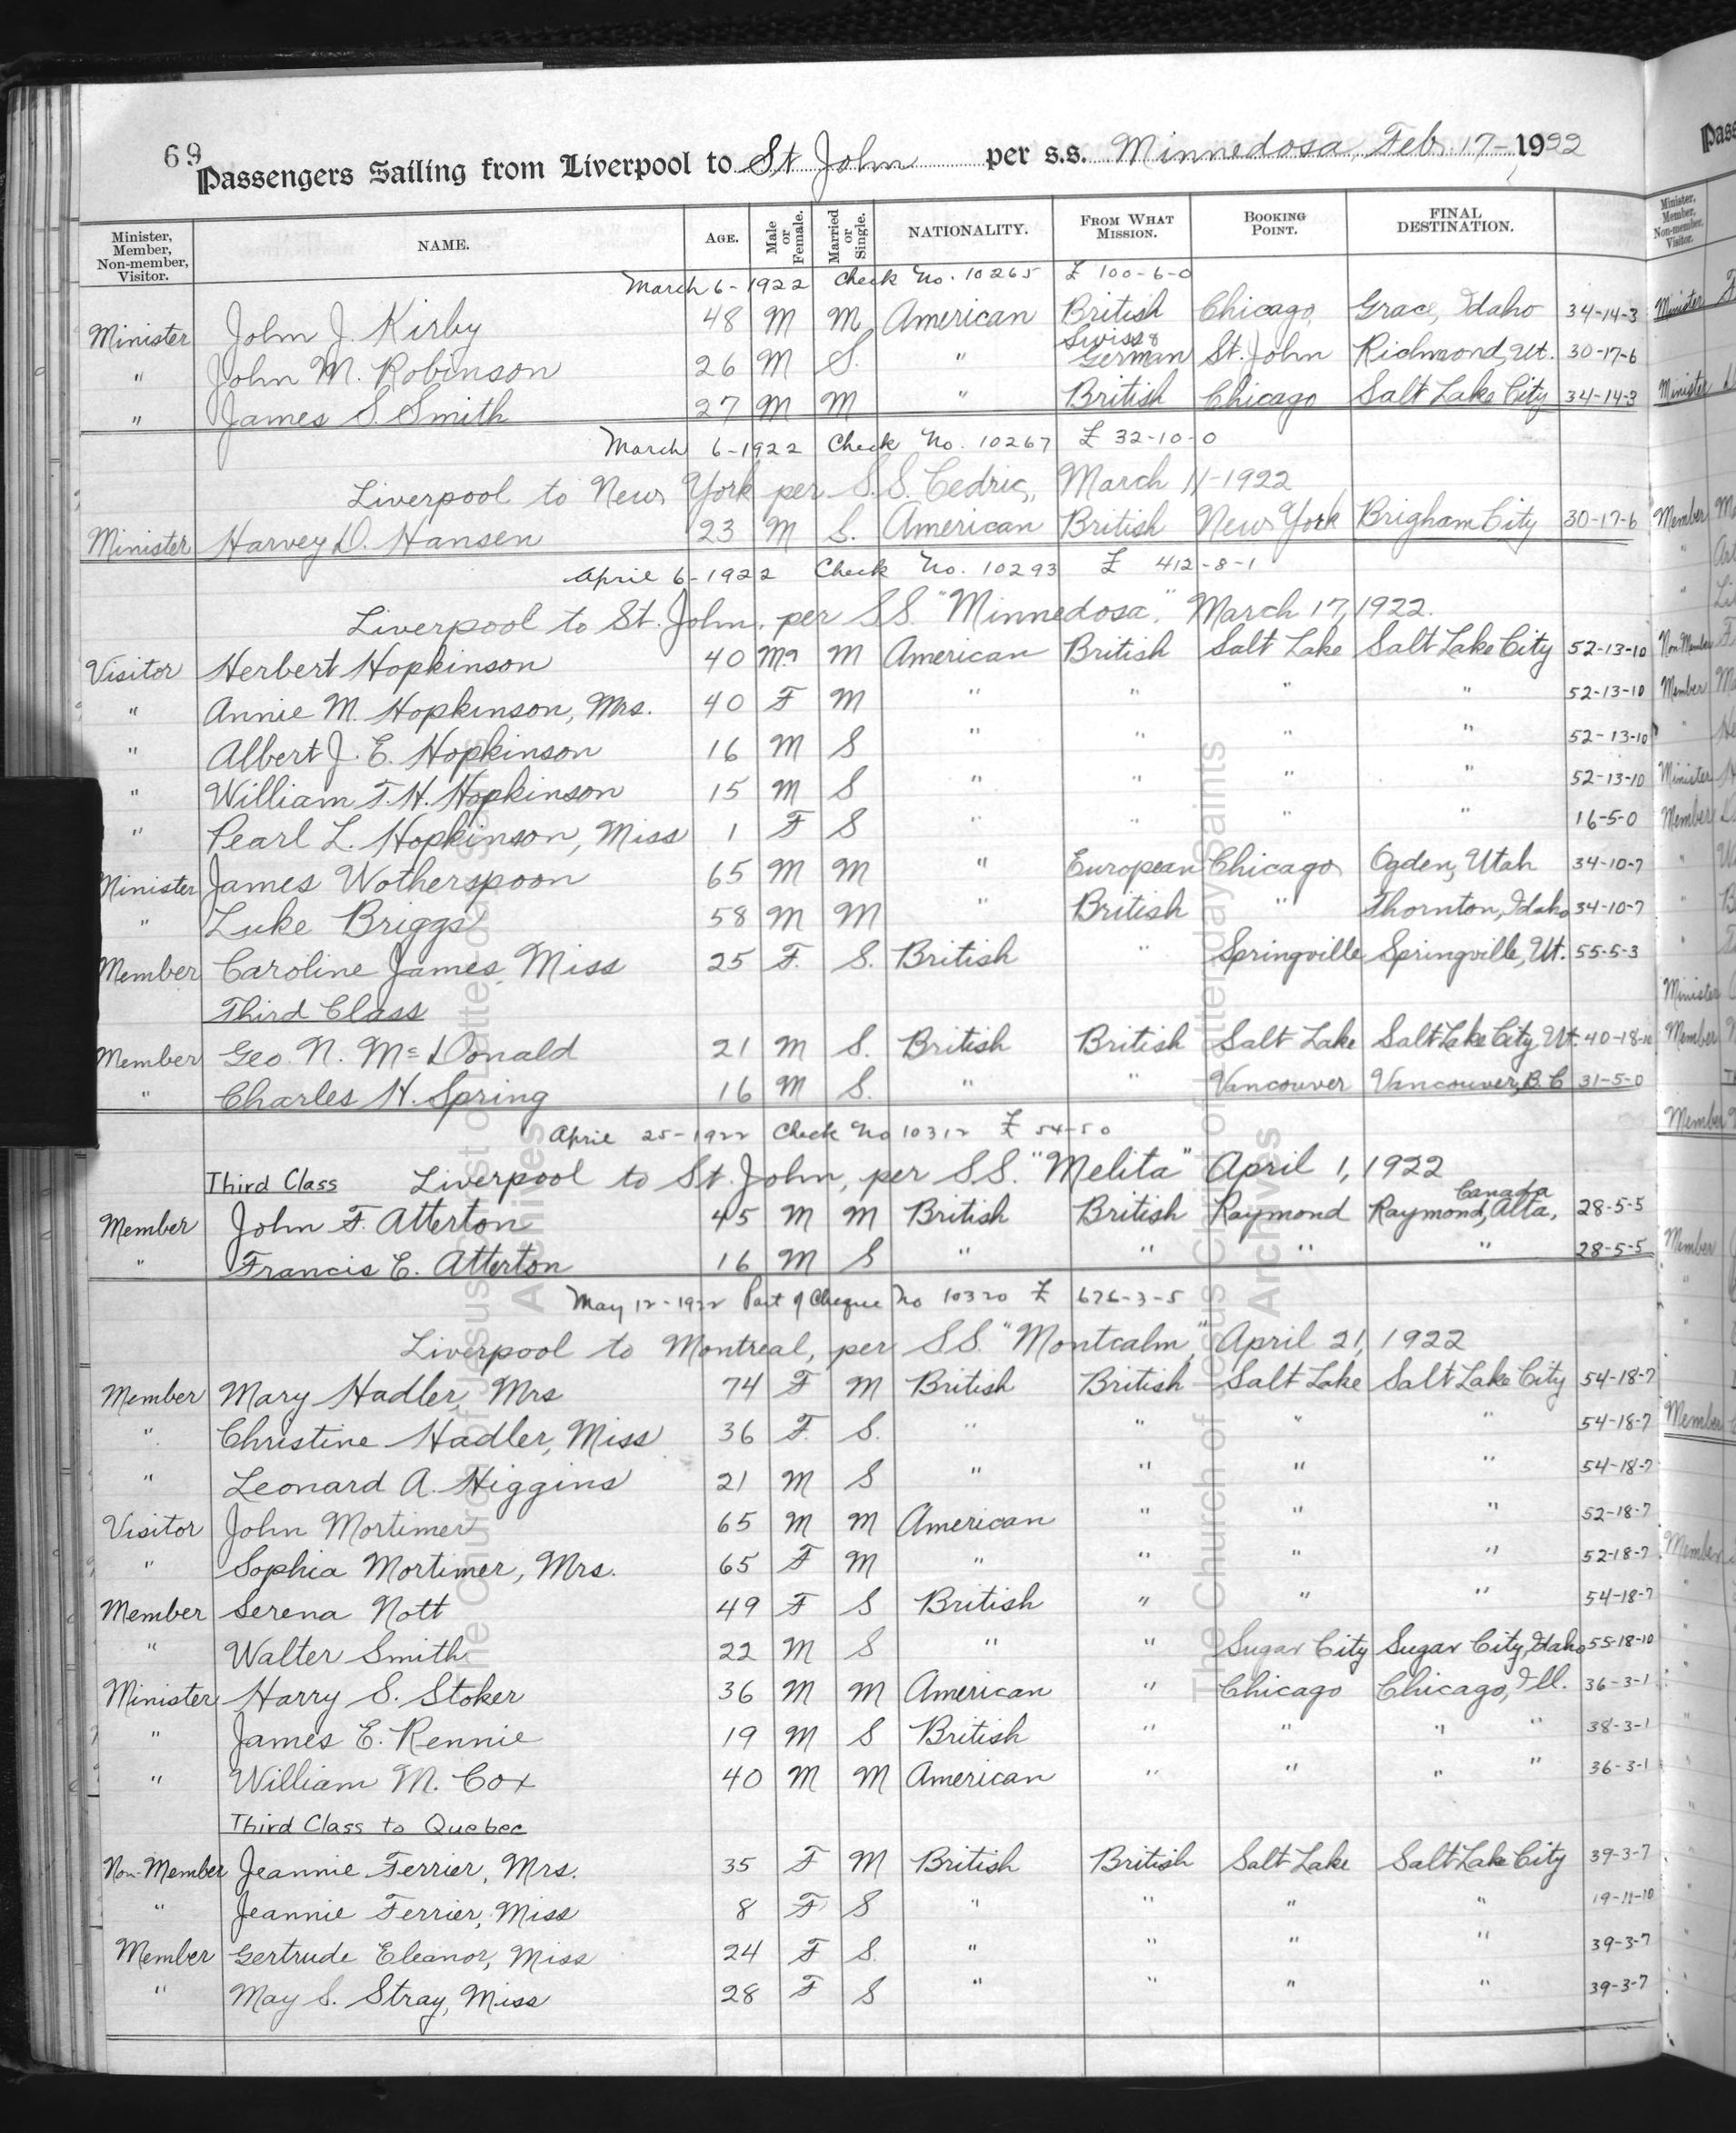 69
Passengers Sailing from Liverpool to St John per s.s. Minnedosa, Feb. 17-, 1922
Minister, Member, Non-member, Visitor. NAME. AGE. Male or Female. Married or Single. NATIONALITY. FROM WHAT MISSION. BOOKING POINT. FINAL DESTINATION.
March 6-1922 Check No. 10265 £ 100-6-0
Minister John J. Kirby 48 M M American British Chicago Grace, Idaho 34-14-3
" John M. Robinson 26 M S. " Swiss & German St. John Richmond, Ut. 30-17-6
" James S. Smith 27 M M " British Chicago Salt Lake City 34-14-3
March 6-1922 Check No. 10267 £ 32-10-0
Liverpool to New York per S.S. Cedric, March 11-1922
Minister Harvey D. Hansen 23 M S. American British New York Brigham City 30-17-6
April 6-1922 Check No. 10293 £ 412-8-1
Liverpool to St. John, per SS. "Minnedosa", March 17, 1922.
Visitor Herbert Hopkinson 40 M M American British Salt Lake Salt Lake City 52-13-10
" Annie M. Hopkinson, Mrs. 40 F M " " " " 52-13-10
" Albert J. E. Hopkinson 16 M S " " " " 52-13-10
" William T. H. Hopkinson 15 M S " " " " 52-13-10
" Pearl L. Hopkinson, Miss 1 F S " " " " 16-5-0
Minister James Wotherspoon 65 M M " European Chicago Ogden, Utah 34-10-7
" Luke Briggs 58 M M " British " Thornton, Idaho 34-10-7
Member Caroline James, Miss 25 F. S. British " Springville Springville, Ut. 55-5-3
Third Class
Member Geo. N. McDonald 21 M S. British British Salt Lake Salt Lake City, Ut. 40-18-10
" Charles H. Spring 16 M S. " " Vancouver Vancouver, B.C 31-5-0
April 25-1922 Check No 10312 £ 54-5 0
Third Class Liverpool to St. John, per SS. "Melita" April 1, 1922
Member John F. Atterton 45 M M British British Raymond Raymond, Alta, Canada 28-5-5
" Francis E. Atterton 16 M S " " " " 28-5-5
May 12-1922 Part of Cheque No 10320 £ 626-3-5
Liverpool to Montreal, per SS. "Montcalm," April 21, 1922
Member Mary Hadler, Mrs 74 F M British British Salt Lake Salt Lake City 54-18-7
" Christine Hadler, Miss 36 F. S. " " " " 54-18-7
" Leonard A. Higgins 21 M S " " " " 54-18-7
Visitor John Mortimer 65 M M American " " " 52-18-7
" Sophia Mortimer, Mrs. 65 F M " " " " 52-18-7
Member Serena Nott 49 F S British " " " 54-18-7
" Walter Smith 22 M S " " Sugar City Sugar City, Idaho 55-18-10
Minister Harry S. Stoker 36 M M American " Chicago Chicago, Ill. 36-3-1
" James E. Rennie 19 M S British " " " " 38-3-1
" William M. Cox 40 M M American " " " " 36-3-1
Third Class to Quebec
Non-Member Jeannie Ferrier, Mrs. 35 F M British British Salt Lake Salt Lake City 39-3-7
" Jeannie Ferrier, Miss 8 F S " " " " 19-11-10
Member Gertrude Eleanor, Miss 24 F S. " " " " 39-3-7
" May S. Stray, Miss 28 F S " " " " 39-3-7
The Church of Jesus Christ of Latter-day Saints
Archives
The Church of Jesus Christ of Latter-day Saints
Archives
Pass
Minister, Member, Non-member, Visitor.
Minister
Minister
Member
Non-Member
Member
Minister
Member
Minister
Member
Member
Member
Member
Member